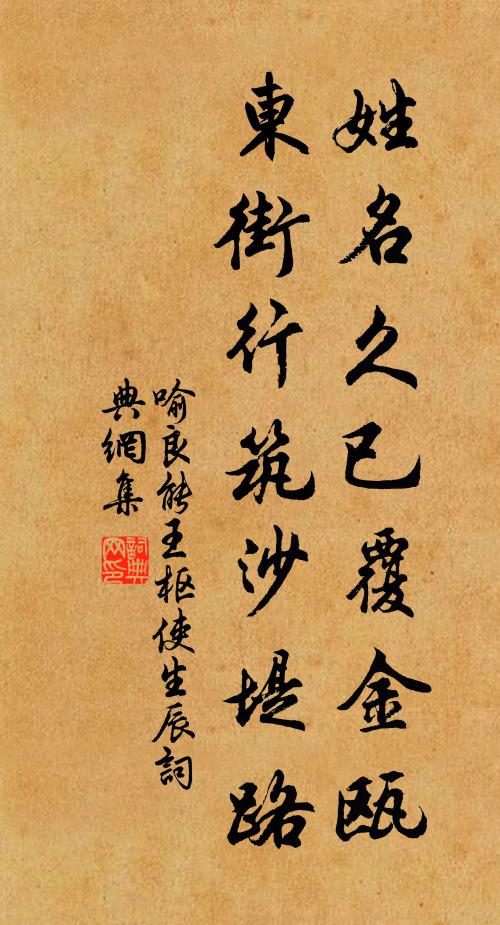 姓名久已覆金瓯
東街行筑沙堤路
喻良能王枢使生辰詞
典網集
詞典网印